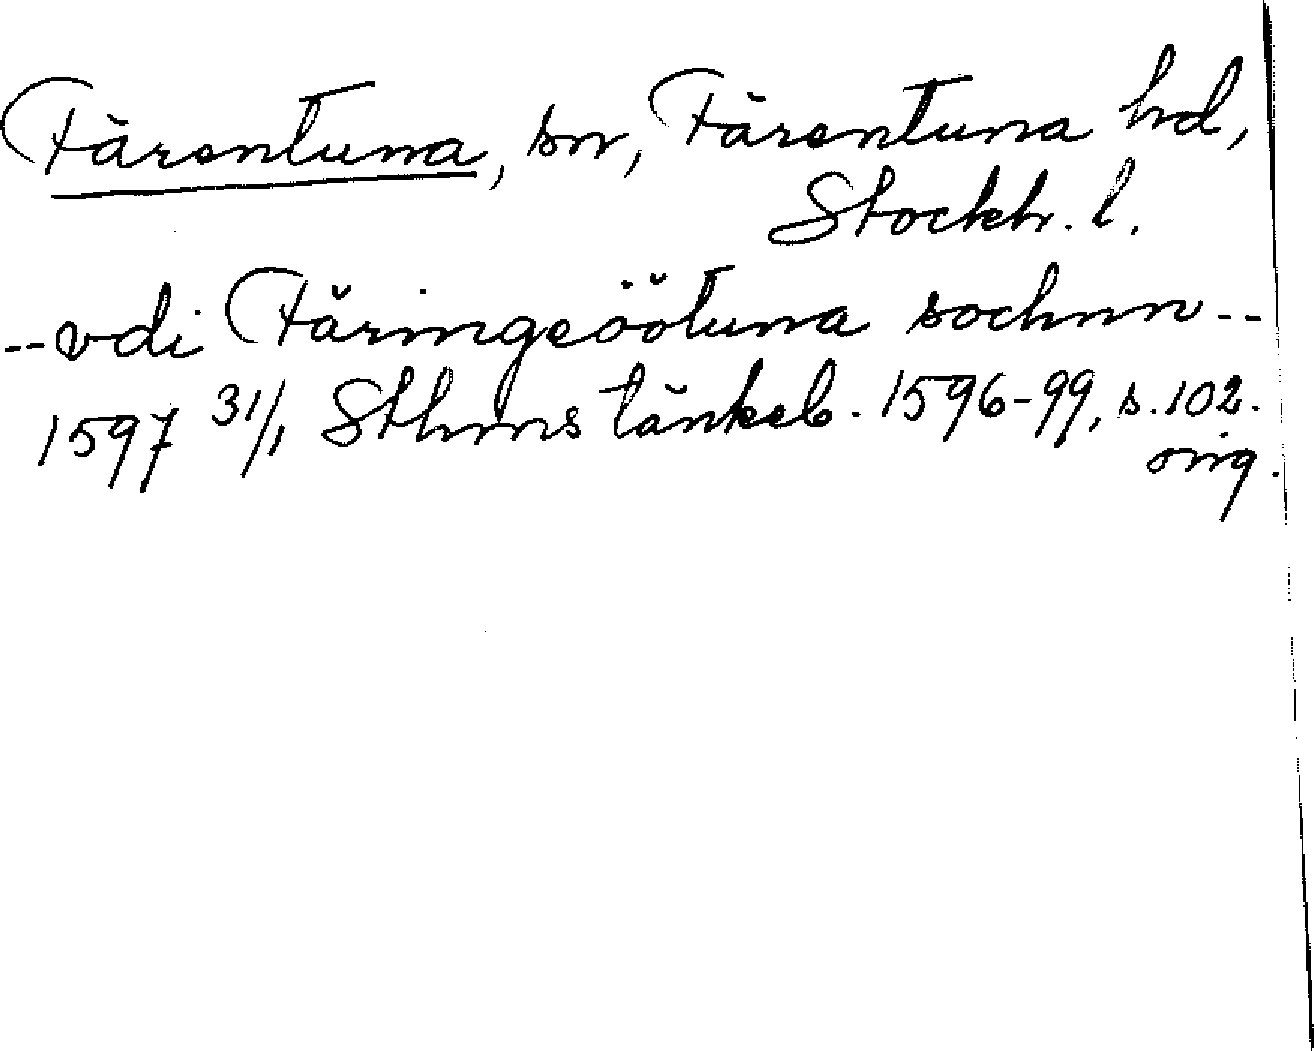 Färentuna, sn, Färentuna hd,
Stockh. l.
-- vdi Färingeöötuna sochnn --
1597 31/1 Sthms tänkeb. 1596-99, s. 102.
orig.